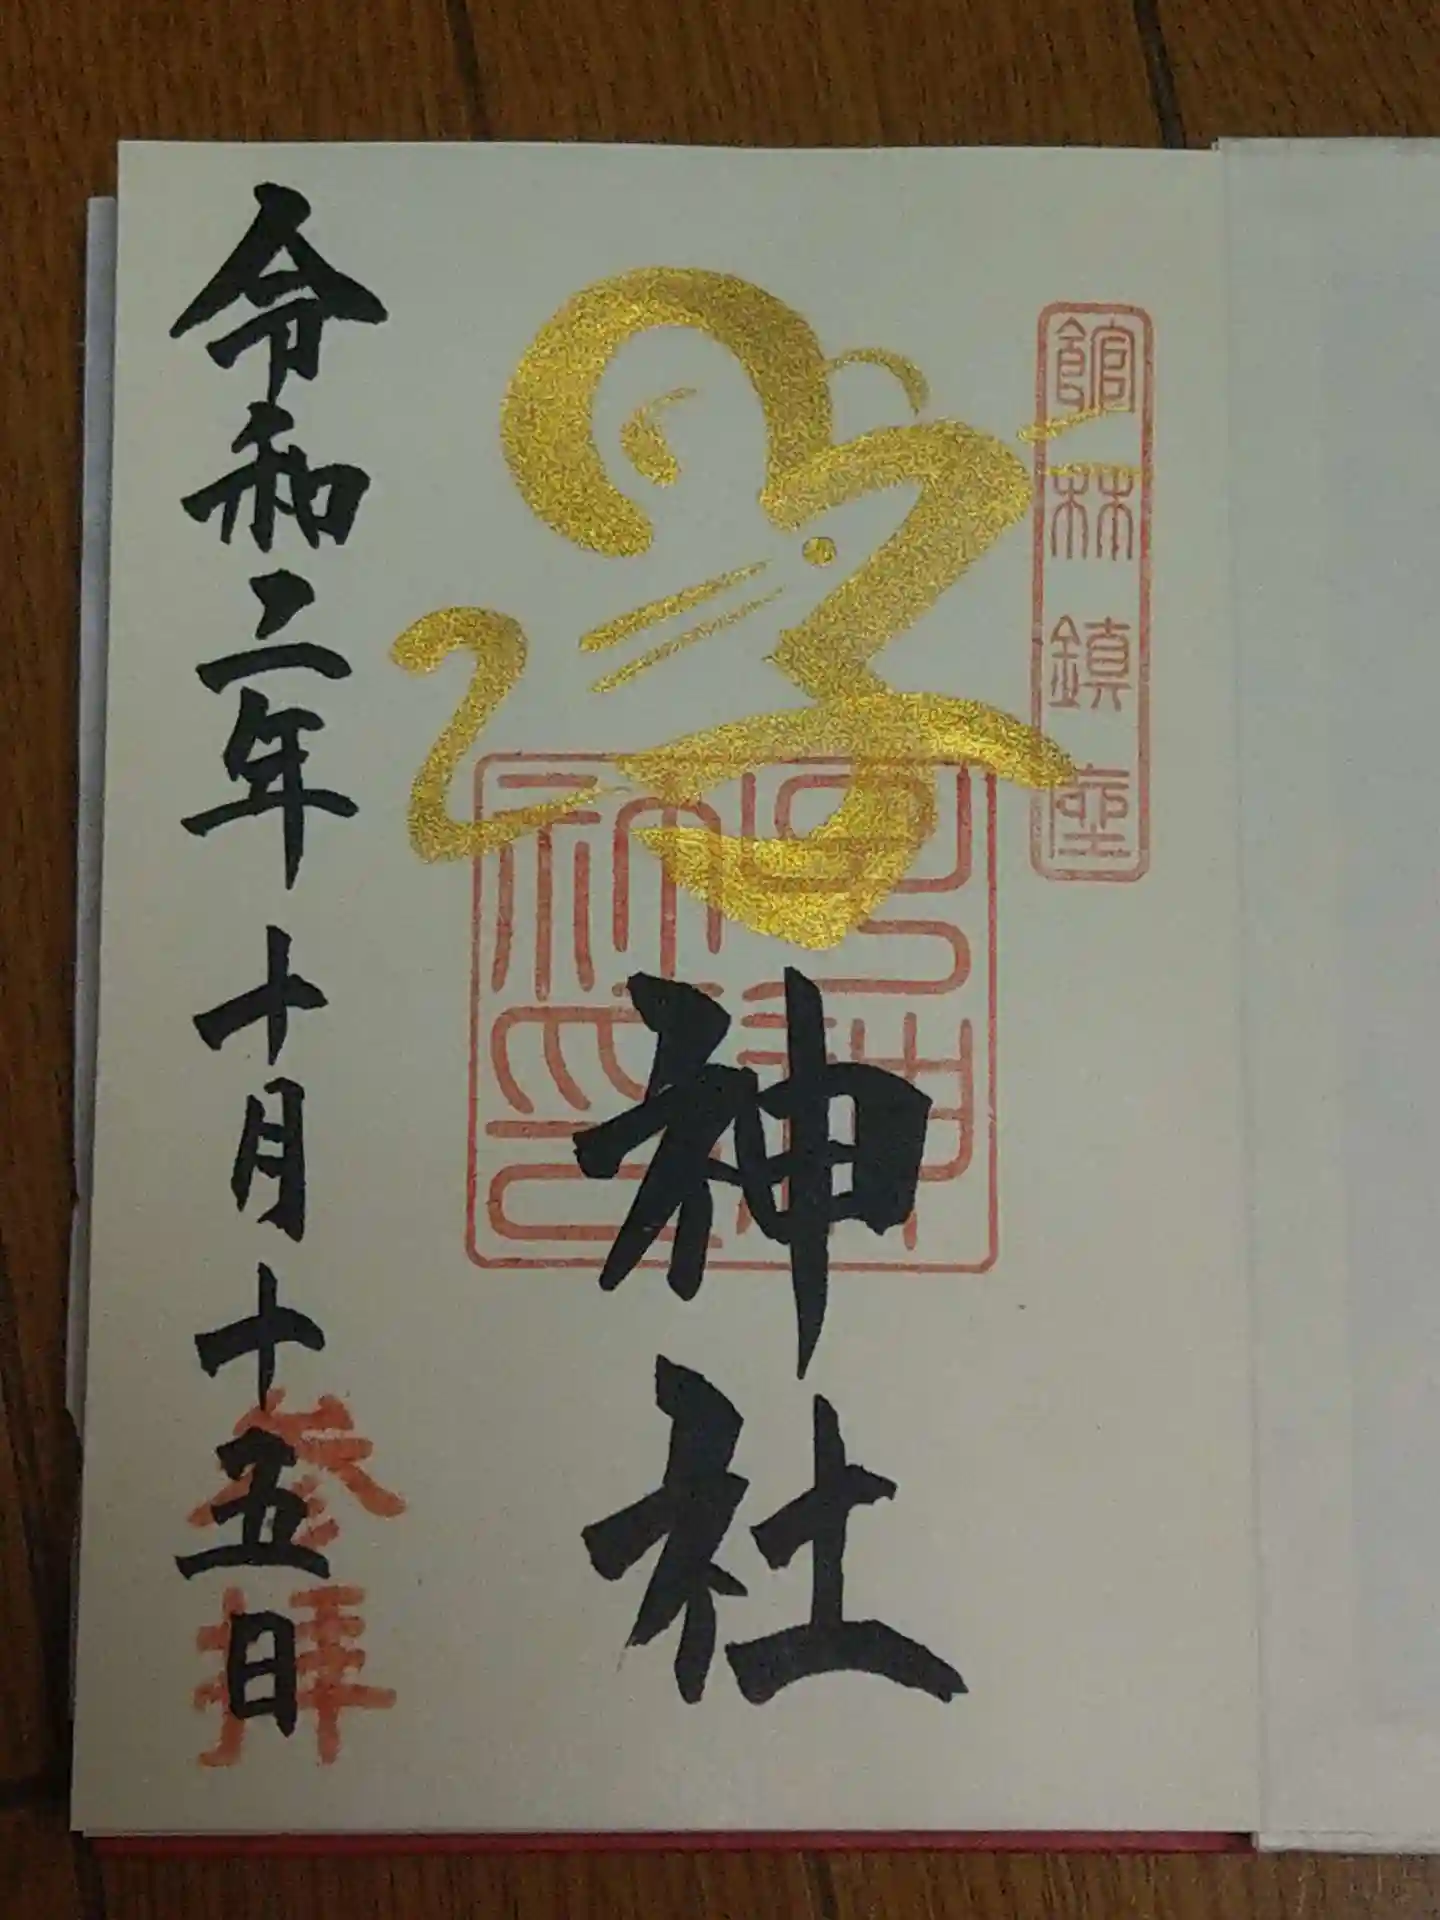 館林鎮座
子
神社
令和二年十月十五日
参拝